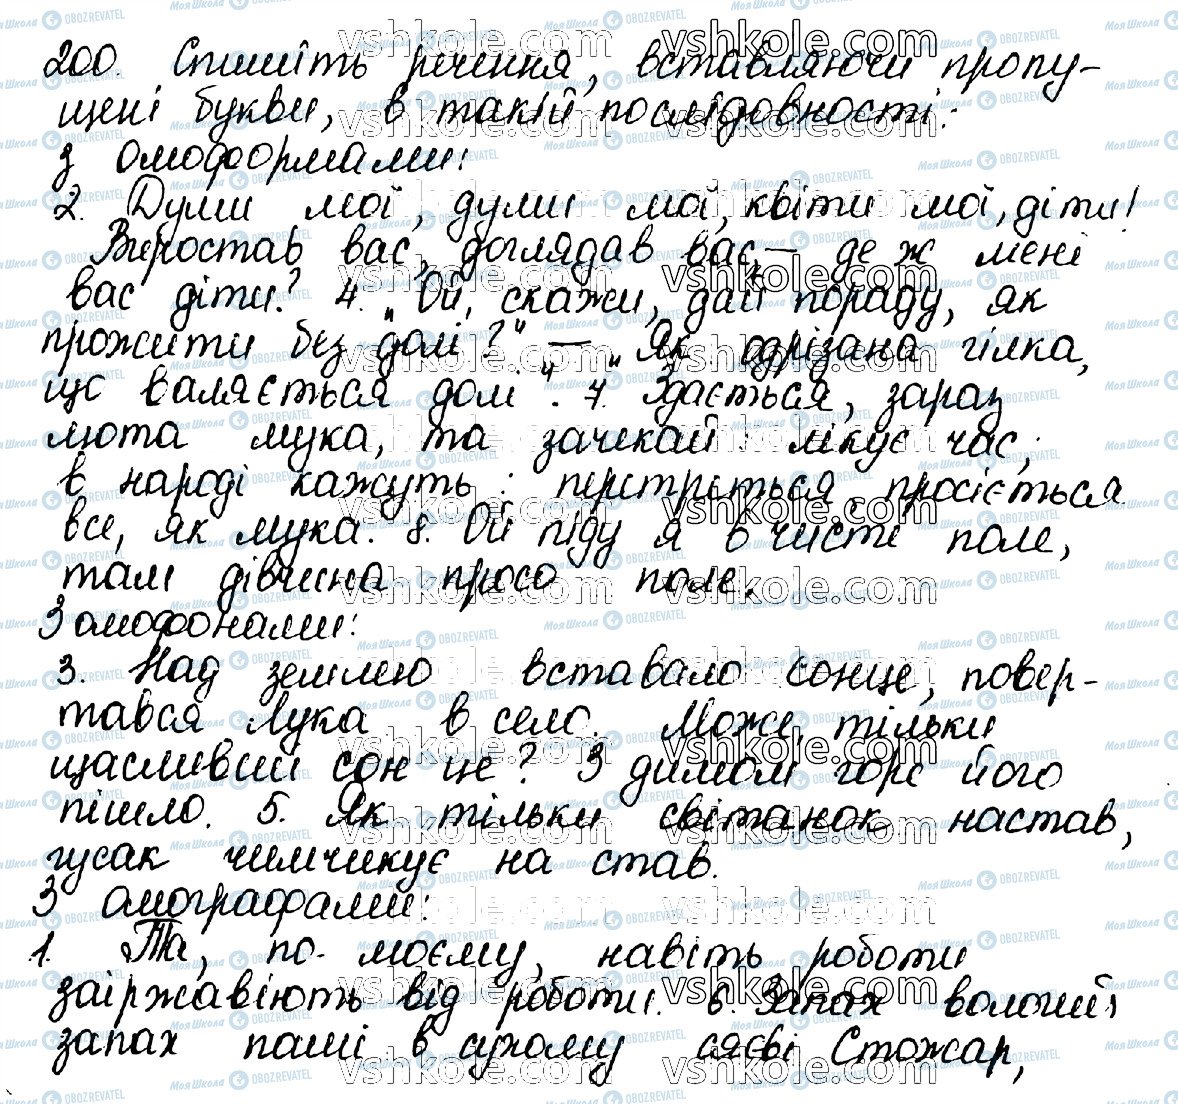 200. Спишіть речення, вставляючи пропу-
щені букви, в такій послідовності:
З омоформами:
2. Думи мої, думи мої, квіти мої, діти!
Виростав вас, доглядав вас, — де ж мені
вас діти? 4. "Ой, скажи, дай пораду, як
прожити без долі?" — "Як одрізана гілка,
що валяється долі". 7. Здається, зараз
люта мука, та зачекай: лікує час;
в народі кажуть: перетреться, просіється
все, як мука. 8. Ой піду я в чистє поле,
там дівчина просо поле.
З омофонами:
3. Над землею вставало сонце, повер-
тався Лука в село. Може, тільки
щасливий сон це? З димом горе його
пішло. 5. Як тільки світанок настав,
гусак чимчикує на став.
З омографами:
1. Та, по-моєму, навіть роботи
заіржавіють від роботи. 6. Запах вологий
запах памі в сухому сяєві Стожар,